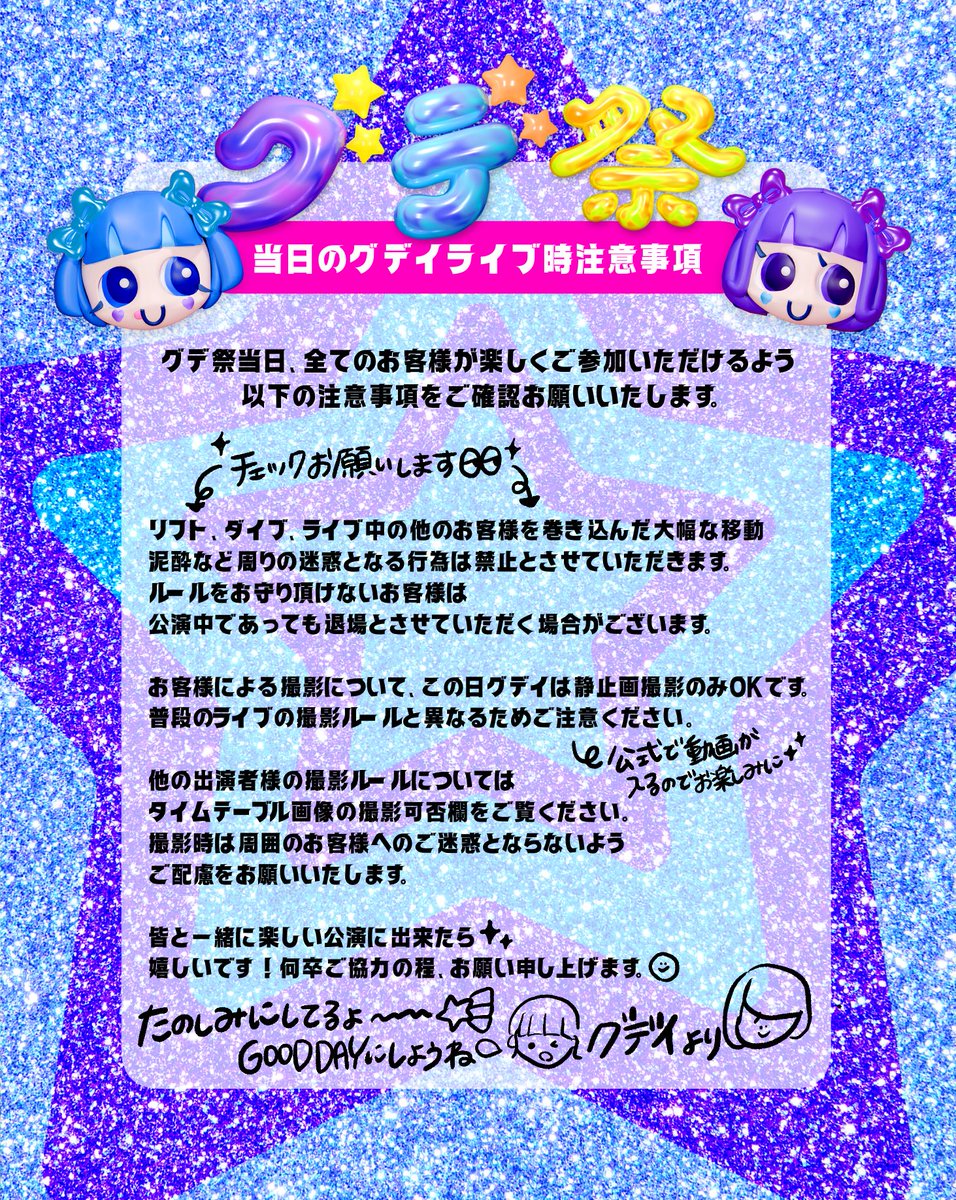 グデ祭
当日のグデイライブ時注意事項
グデ祭当日、全てのお客様が楽しくご参加いただけるよう
以下の注意事項をご確認お願いいたします。
チェックお願いします
リフト、ダイブ、ライブ中の他のお客様を巻き込んだ大幅な移動
泥酔など周りの迷惑となる行為は禁止とさせていただきます。
ルールをお守り頂けないお客様は
公演中であっても退場とさせていただく場合がございます。
お客様による撮影について、この日グデイは静止画撮影のみOKです。
普段のライブの撮影ルールと異なるためご注意ください。
公式で動画が
入るのでお楽しみに
他の出演者様の撮影ルールについては
タイムテーブル画像の撮影可否欄をご覧ください。
撮影時は周囲のお客様へのご迷惑とならないよう
ご配慮をお願いいたします。
皆と一緒に楽しい公演に出来たら
嬉しいです！何卒ご協力の程、お願い申し上げます。
たのしみにしてるよ〜
GOOD DAYにしようね
グデイより